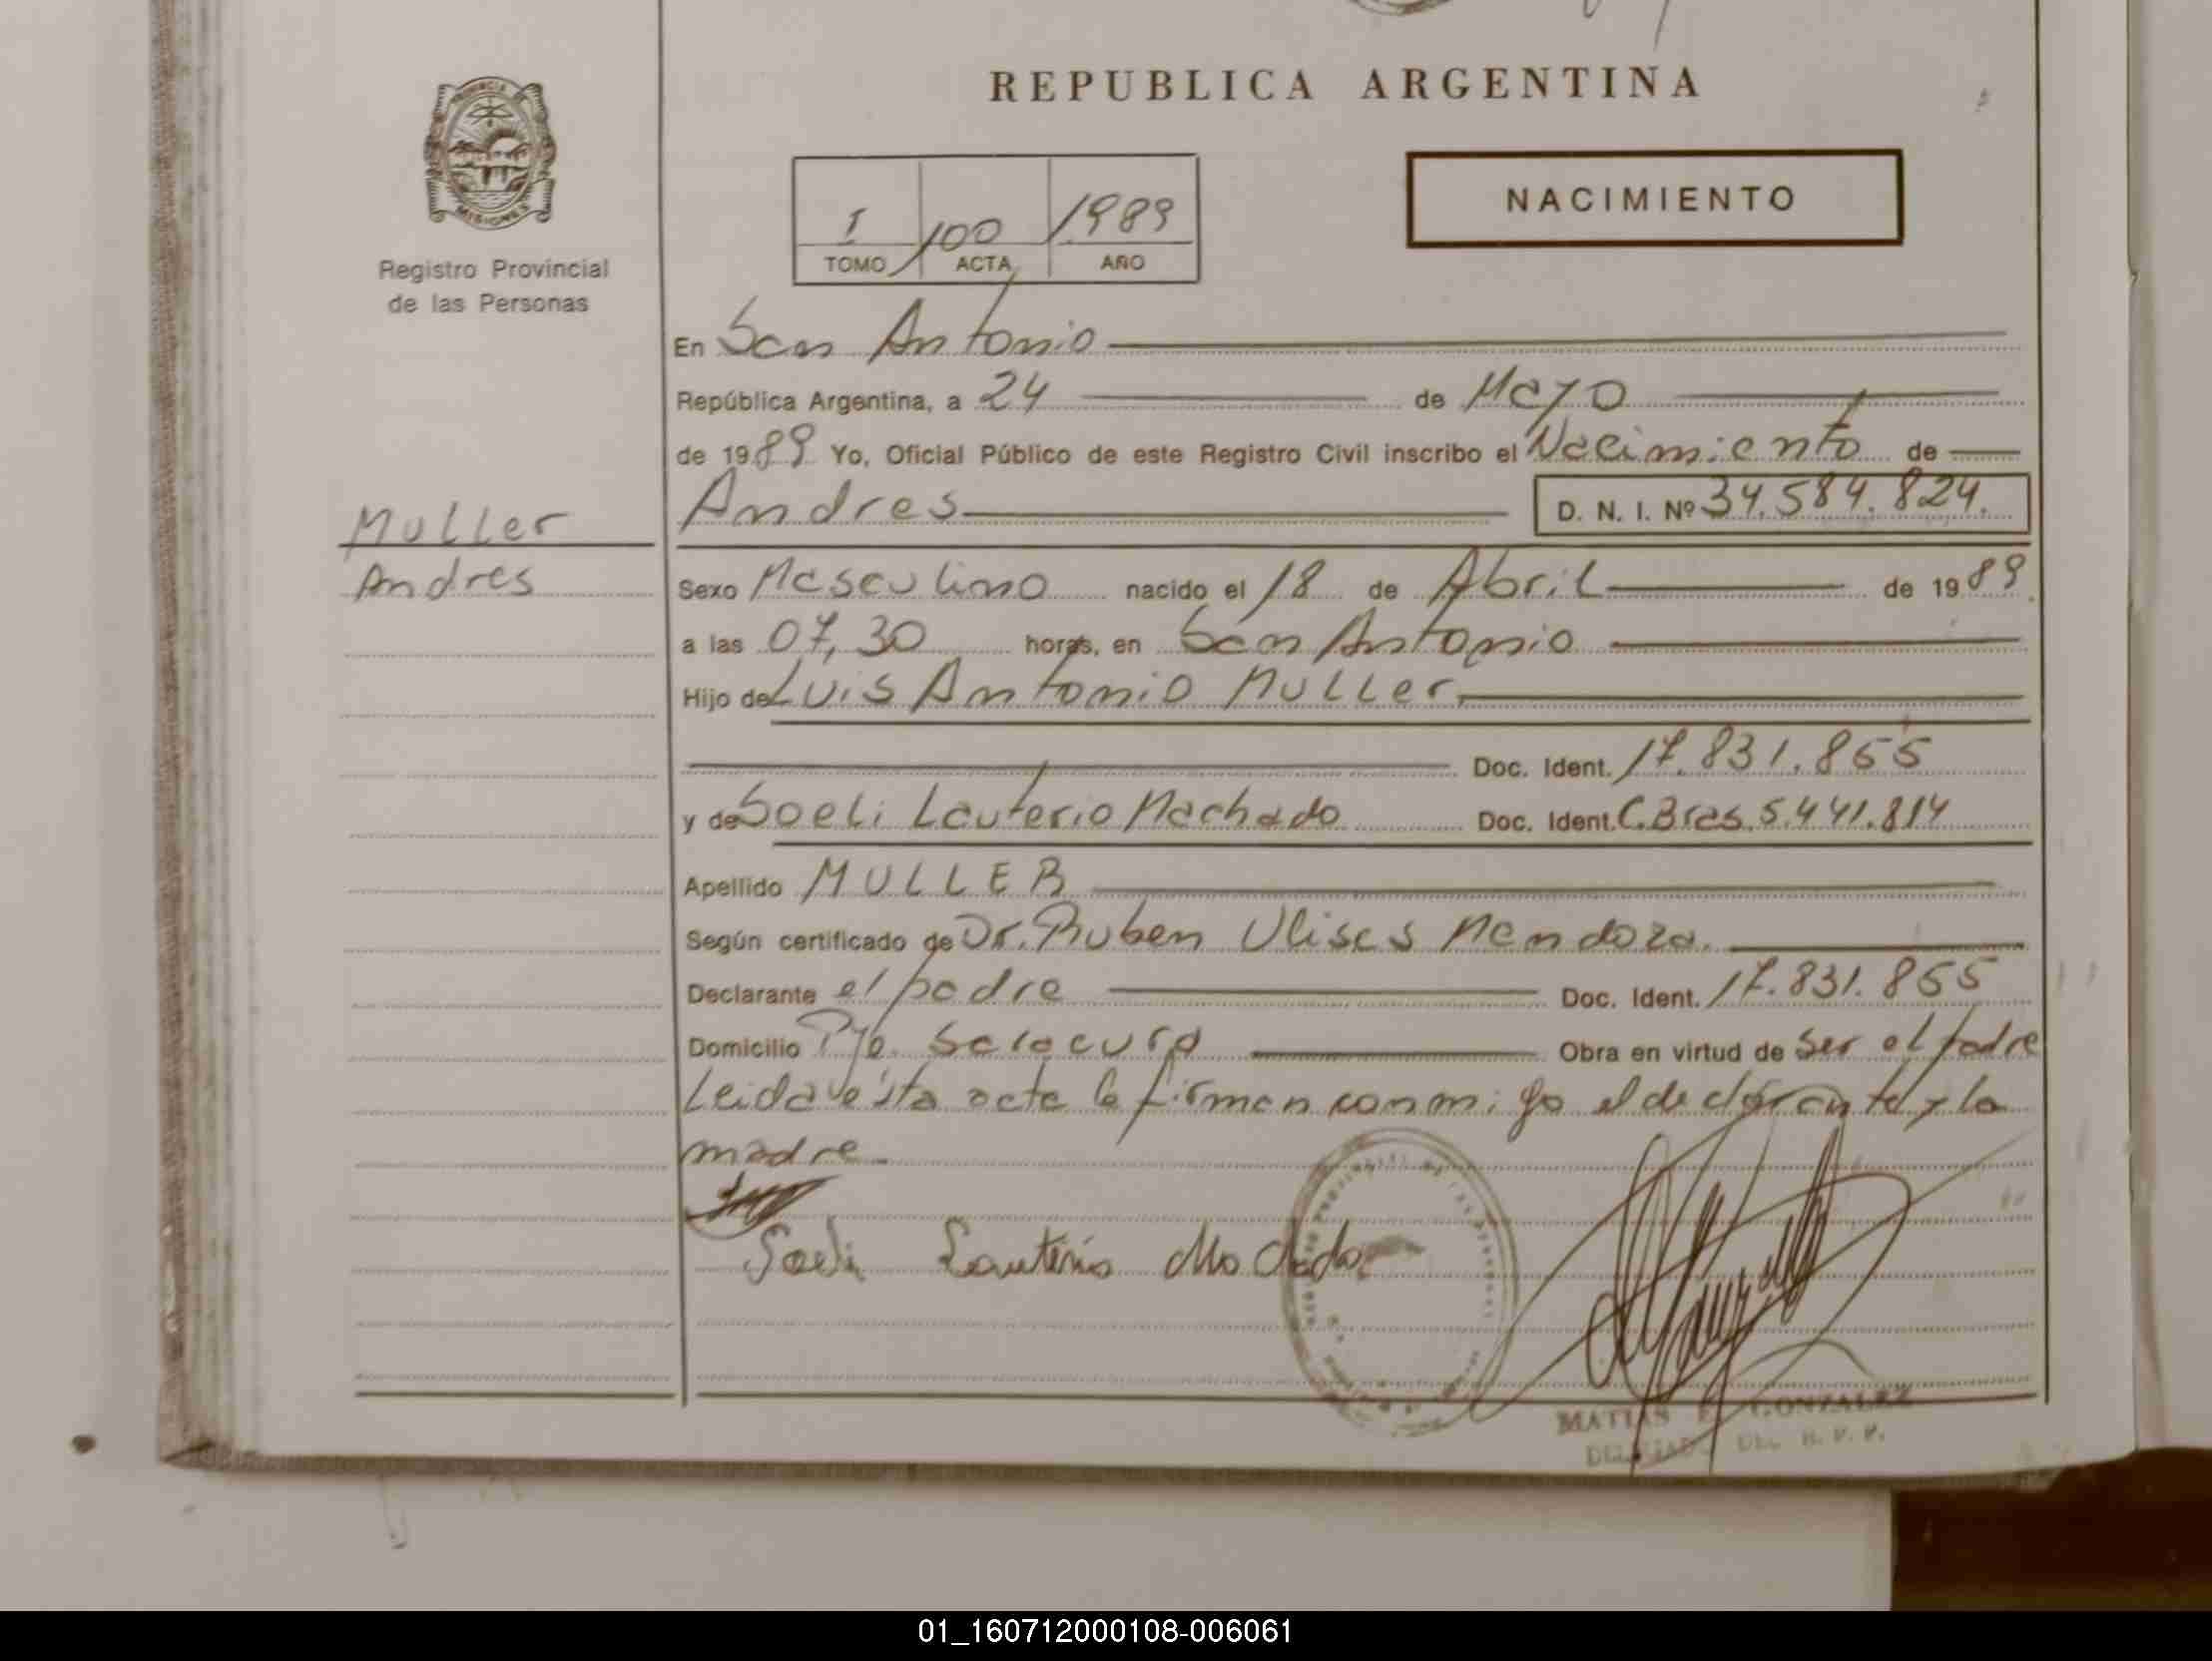 REPUBLICA ARGENTINA
PROVINCIA DE
MISIONES
Registro Provincial
de las Personas
NACIMIENTO
I 100 1989
TOMO ACTA AÑO
En San Antonio
República Argentina, a 24 de Mayo
de 1989 Yo, Oficial Público de este Registro Civil inscribo el Nacimiento de
Andres D. N. I. Nº 34.584.824.
Muller
Andres
Sexo Masculino nacido el 18 de Abril de 1989
a las 07,30 horas, en San Antonio
Hijo de Luis Antonio Muller
Doc. Ident. 17.831.855
y de Soeli Lauterio Machado Doc. Ident. C.Bras. 5.441.814
Apellido MULLER
Según certificado de Dr. Ruben Ulises Mendoza.
Declarante el padre Doc. Ident. 17.831.855
Domicilio Pje. Saracura Obra en virtud de ser el padre
Leida ésta acta la firman conmigo el declarante y la
madre
Soeli Lauterio Machado
MATIAS GONZALEZ
DELEGADO DEL R. P. P.
01_160712000108-006061